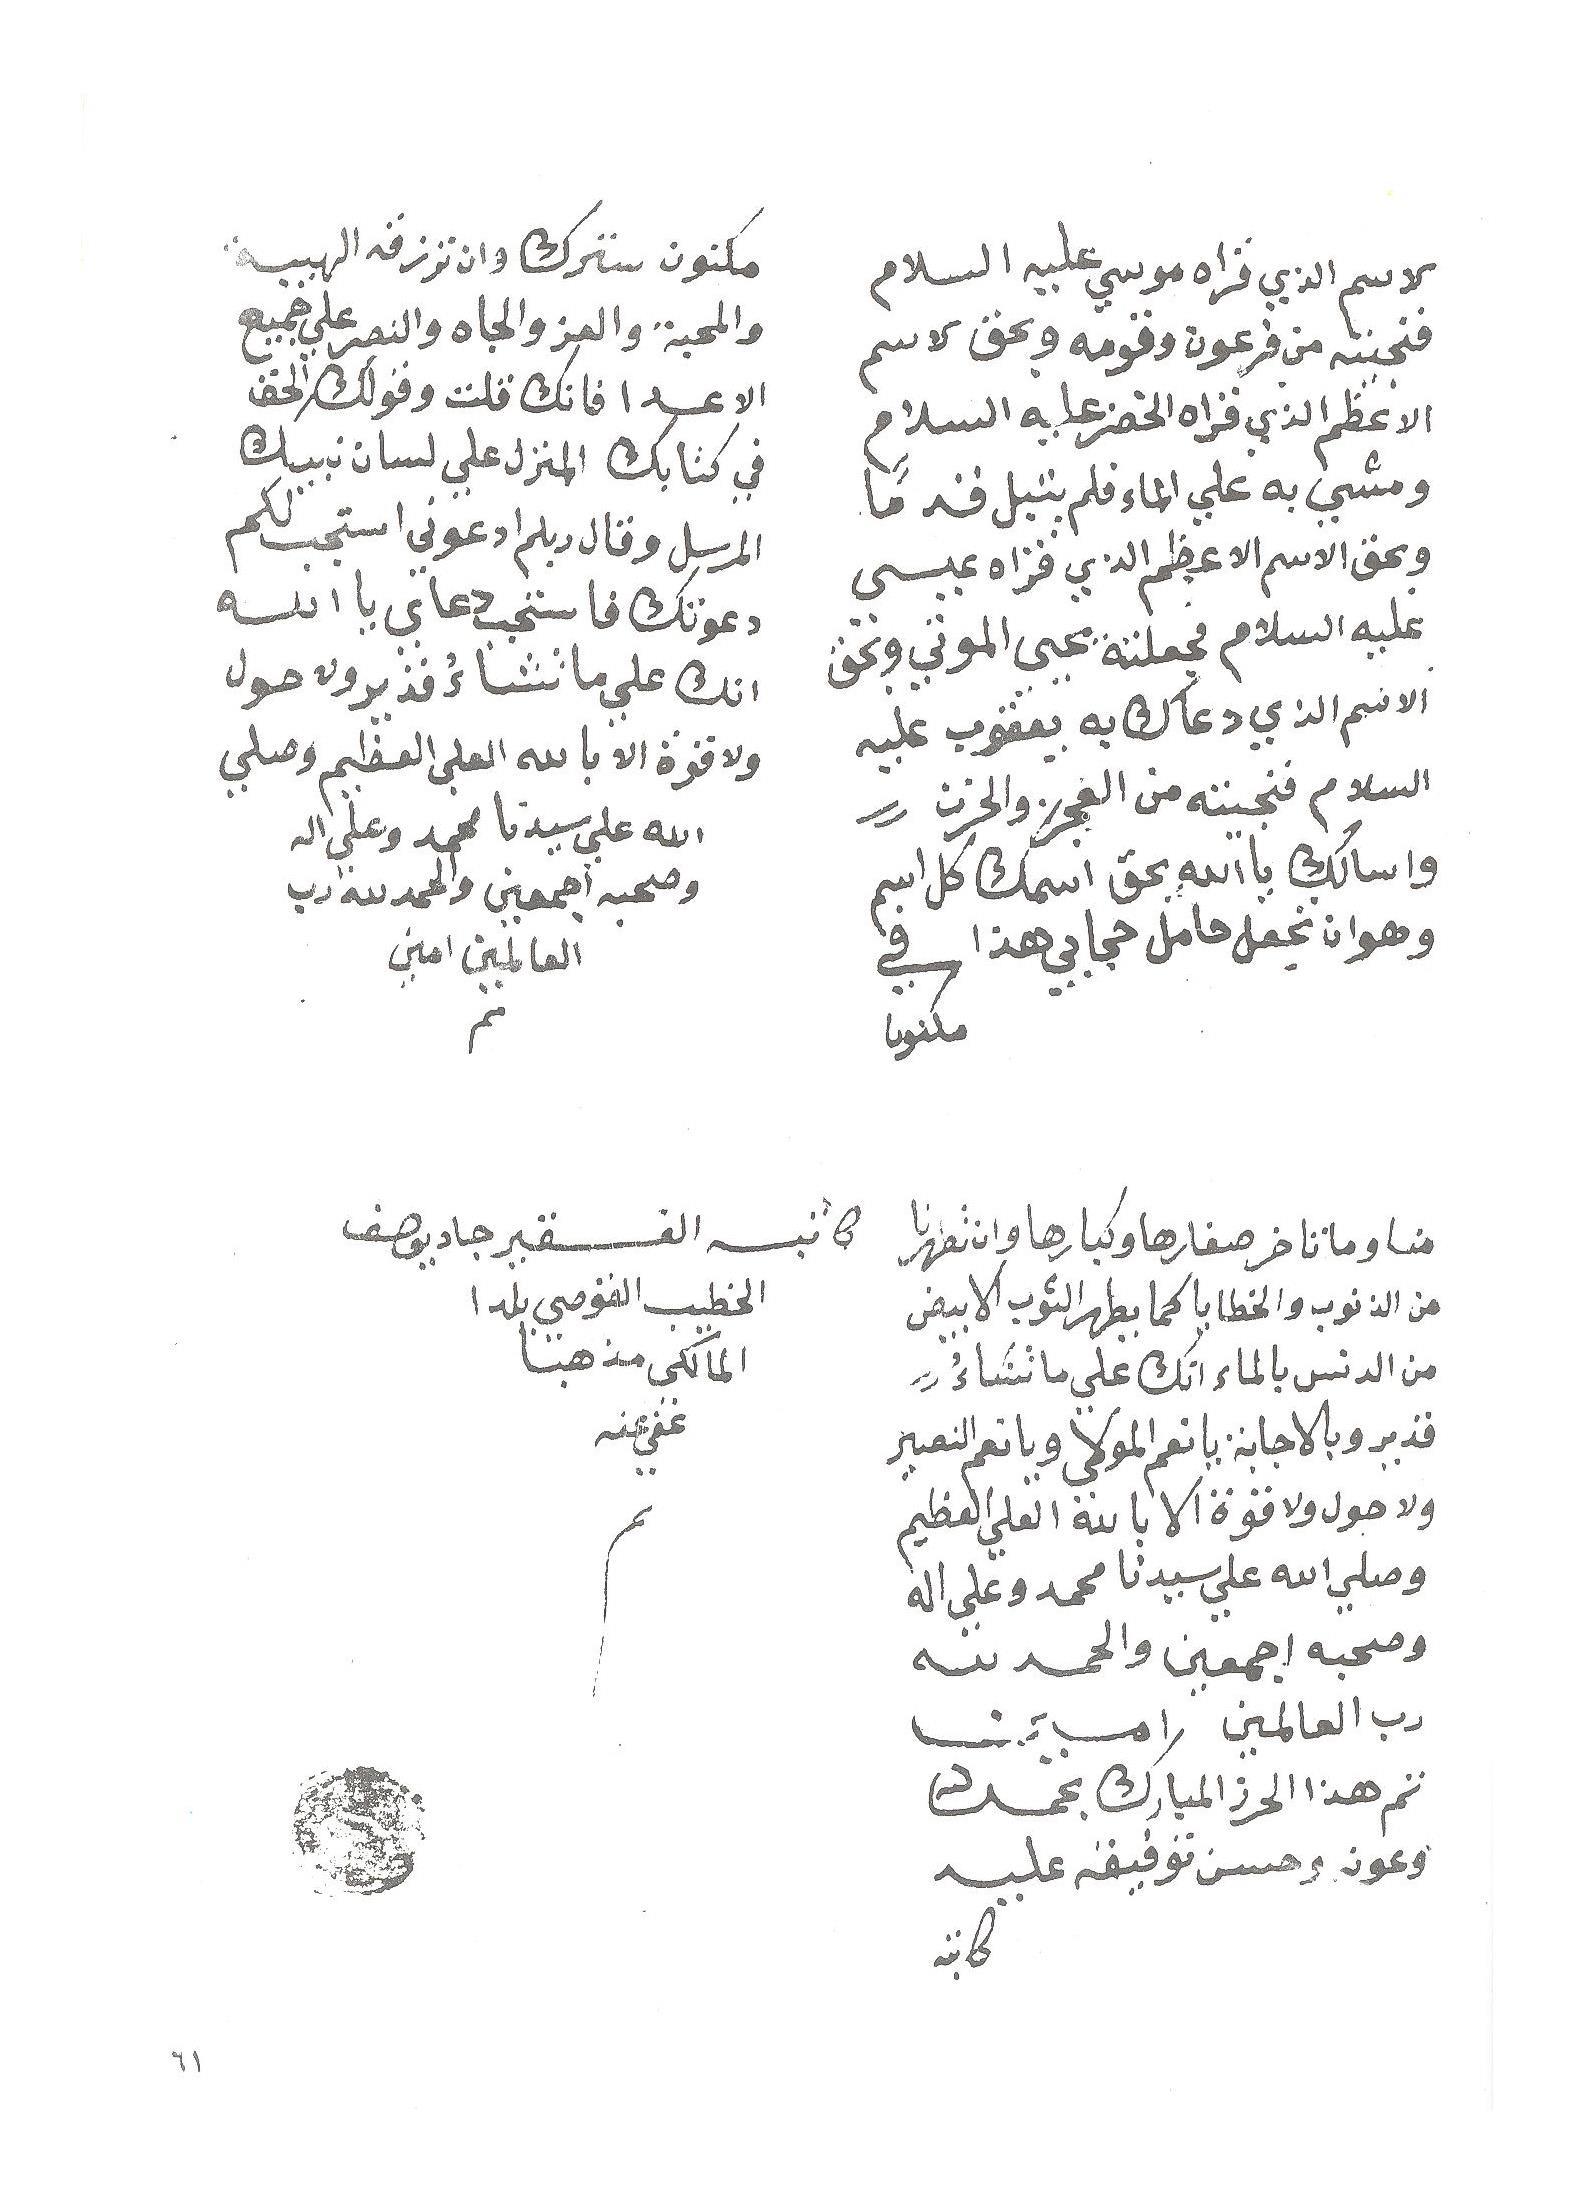 لاسم الذي قراه موسي عليه السلام
فنجيته من فرعون وقومه وبحق لاسم
الاعظم الذي قراه الخضر عليه السلام
ومشي به علي الماء فلم يتبل
وبحق الاسم الاعظم الذي قراه عيسي
عليه السلام فجعلته يحيى الموتي وبحق
الاسم الذي دعاك به يعقوب عليه
السلام فنجيته من والحزن
واسالك يا الله بحق اسمك كل اسم
وهو ان تجعل حامل حجابي هذا في
مكنون
مكنون سترك وان ترزقه الهيبة
والمحبة والعز والجاه والنصر علي جميع
الاعدا فانك قلت وقولك الحق
في كتابك المنزل علي لسان نبيك
المرسل وقال ربكم ادعوني استجب لكم
دعوتك فاستجب دعاي يا الله
انك علي ما تشاء قدير ولا حول
ولا قوة الا بالله العلي العظيم وصلي
الله علي سيدنا محمد وعلي اله
وصحبه أجمعين والحمد لله رب
العالمين امين
تم
منا وما تاخر صغارها وكبارها وان تطهرنا
من الذنوب والخطايا كما يطهر الثوب الابيض
من الدنس بالماء انك علي ما تشاء
قدير وبالاجابة يا نعم المولي ويا نعم النصير
ولا حول ولا قوة الا بالله العلي العظيم
وصلي الله علي سيدنا محمد وعلي اله
وصحبه اجمعين والحمد لله
رب العالمين
تم هذا الحرز المبارك بحمد
وعون وحسن توفيقه عليه
كاتبه
كاتبه الفقير جاد يوصف
الخطيب القوصي بلدا
المالكي مذهبا
عفي عنه
تم
٦١